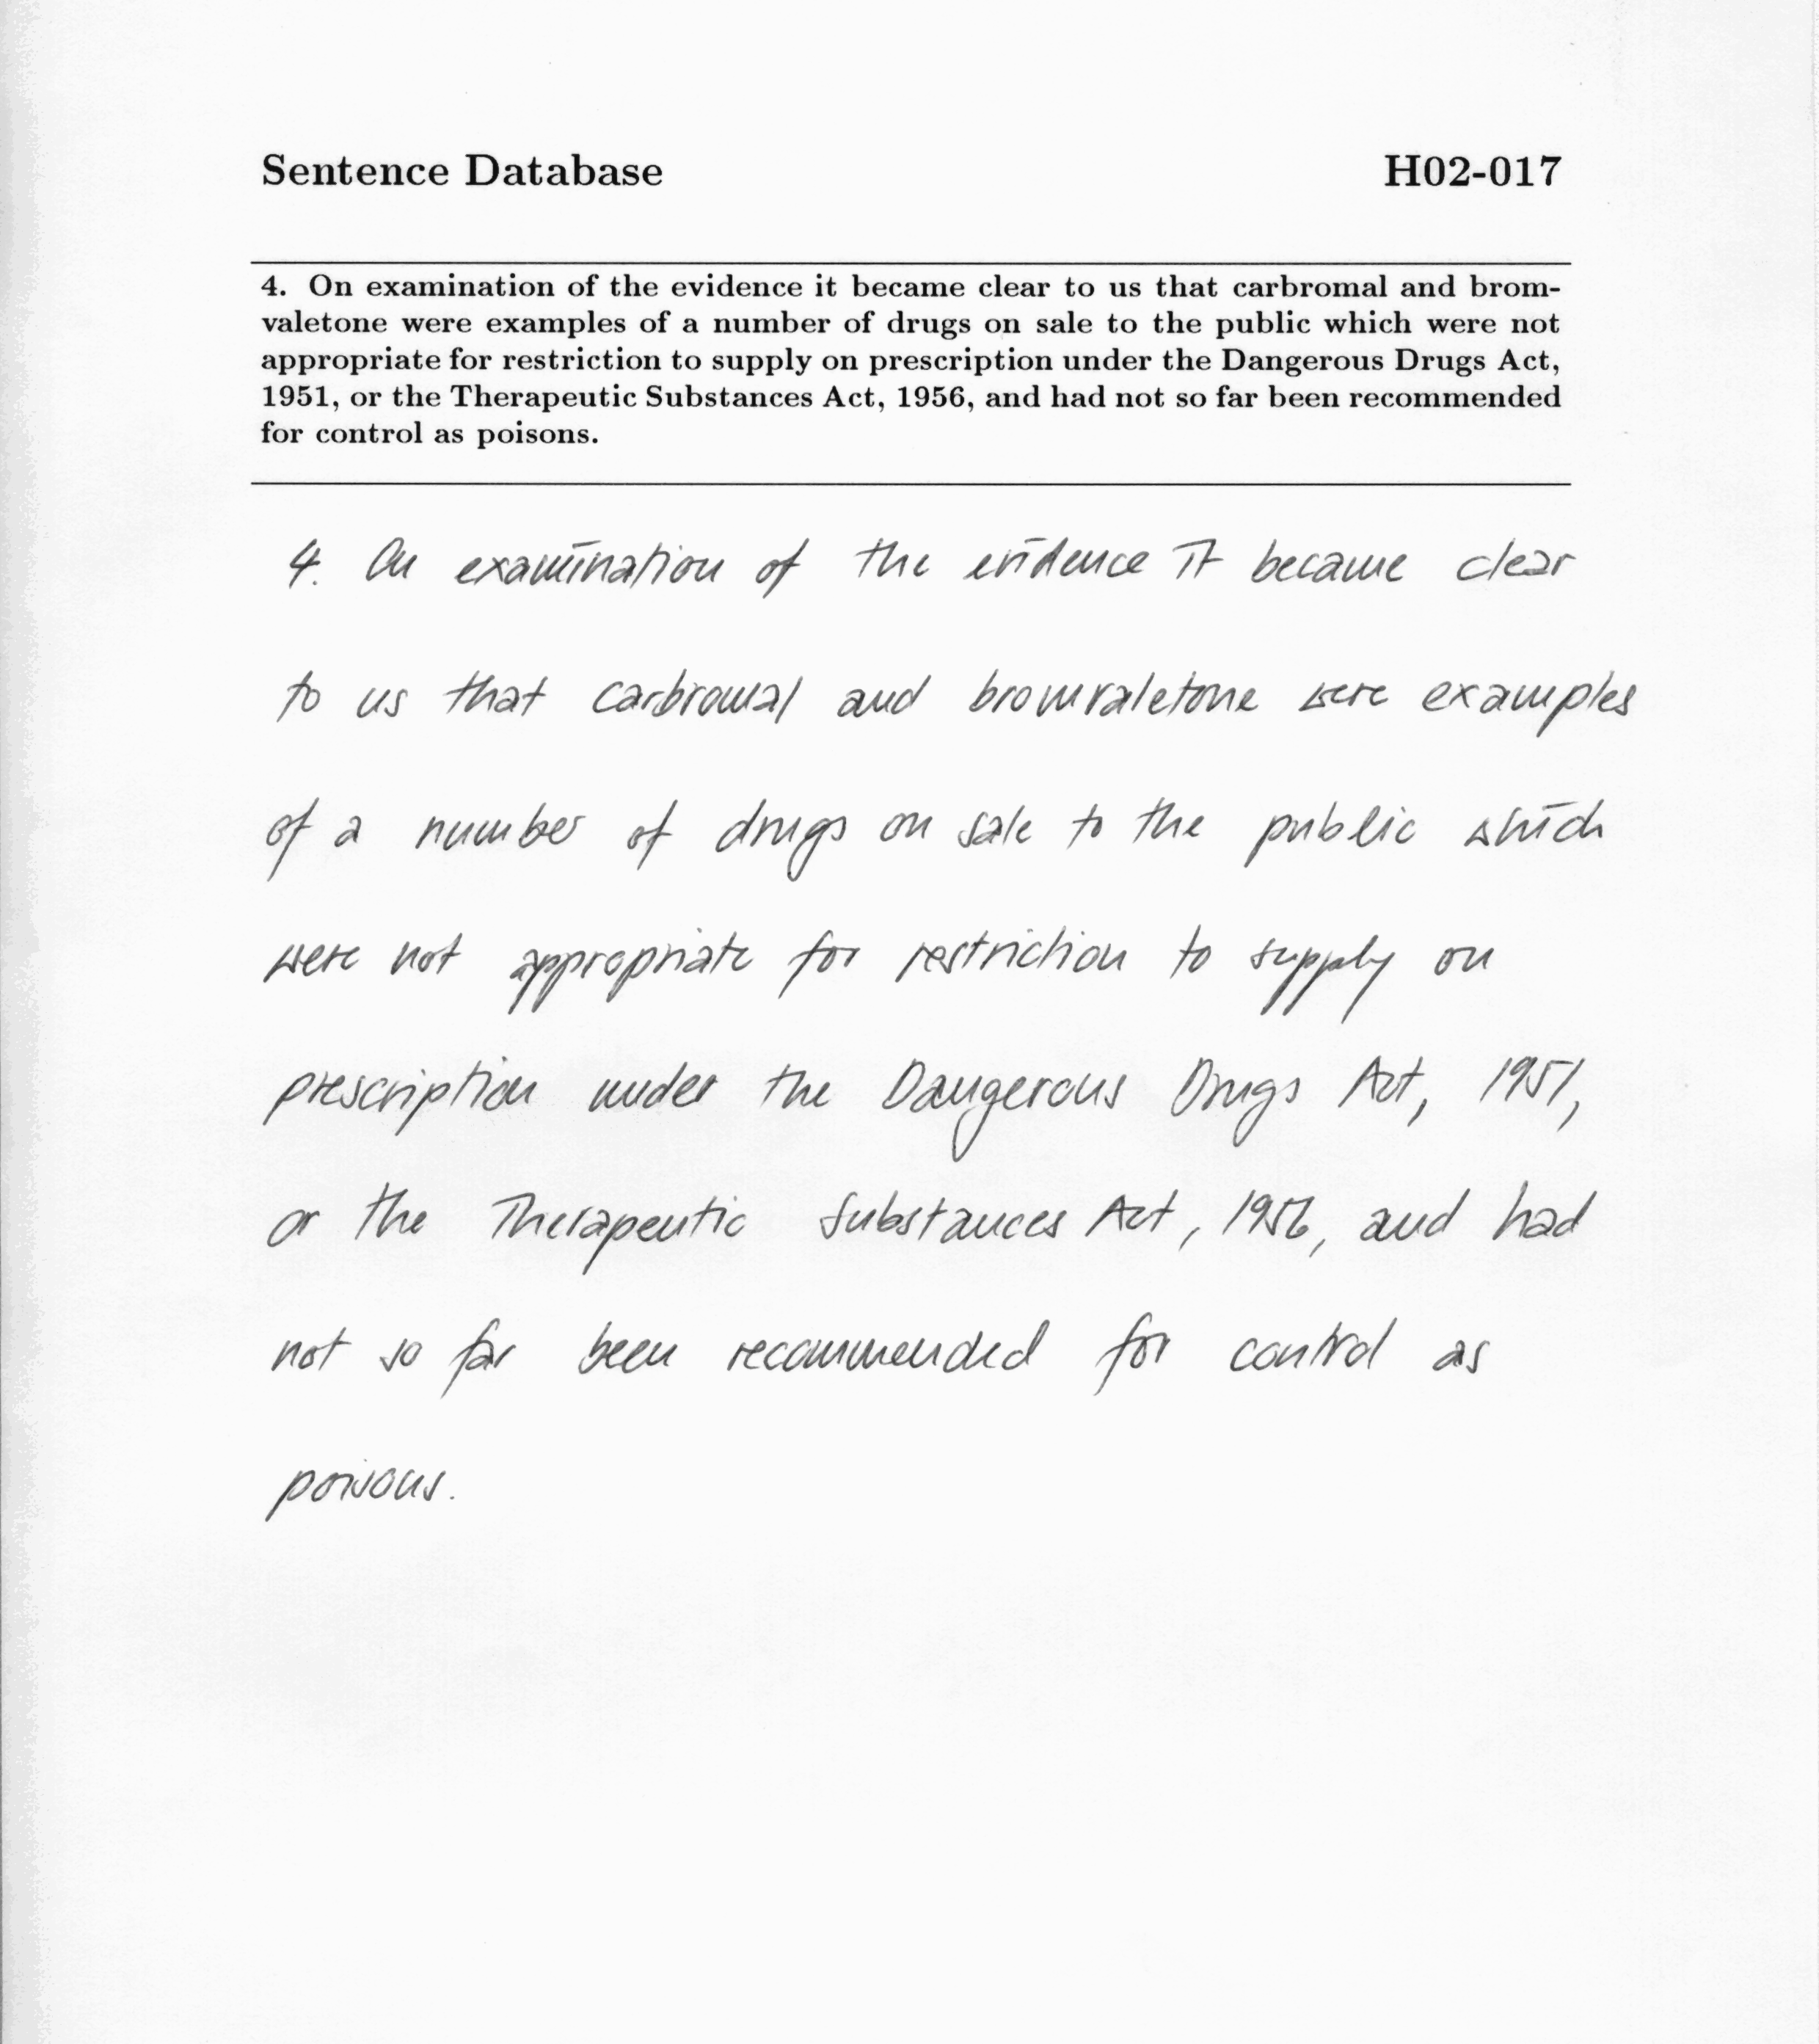 Sentence Database H02-017
4. On examination of the evidence it became clear to us that carbromal and brom-
valetone were examples of a number of drugs on sale to the public which were not
appropriate for restriction to supply on prescription under the Dangerous Drugs Act,
1951, or the Therapeutic Substances Act, 1956, and had not so far been recommended
for control as poisons.
4. On examination of the evidence it became clear
to us that carbromal and bromvaletone were examples
of a number of drugs on sale to the public which
were not appropriate for restriction to supply on
prescription under the Dangerous Drugs Act, 1951,
or the Therapeutic Substances Act, 1956, and had
not so far been recommended for control as
poisons.